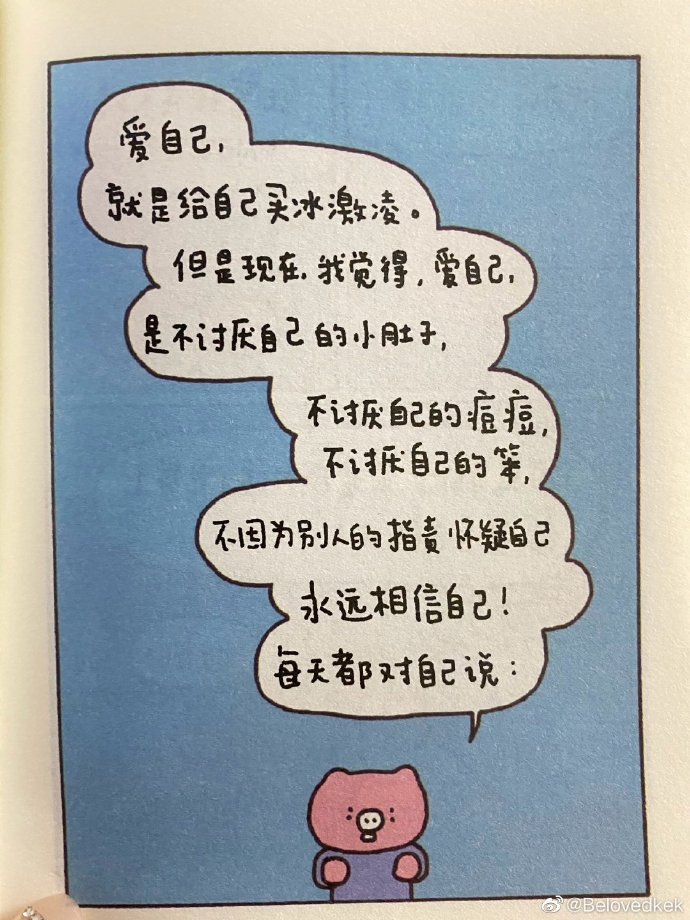 爱自己,
就是给自己买冰激凌。
但是现在,我觉得,爱自己,
是不讨厌自己的小肚子,
不讨厌自己的痘痘,
不讨厌自己的笨,
不因为别人的指责怀疑自己
永远相信自己!
每天都对自己说:
@Belovedkek